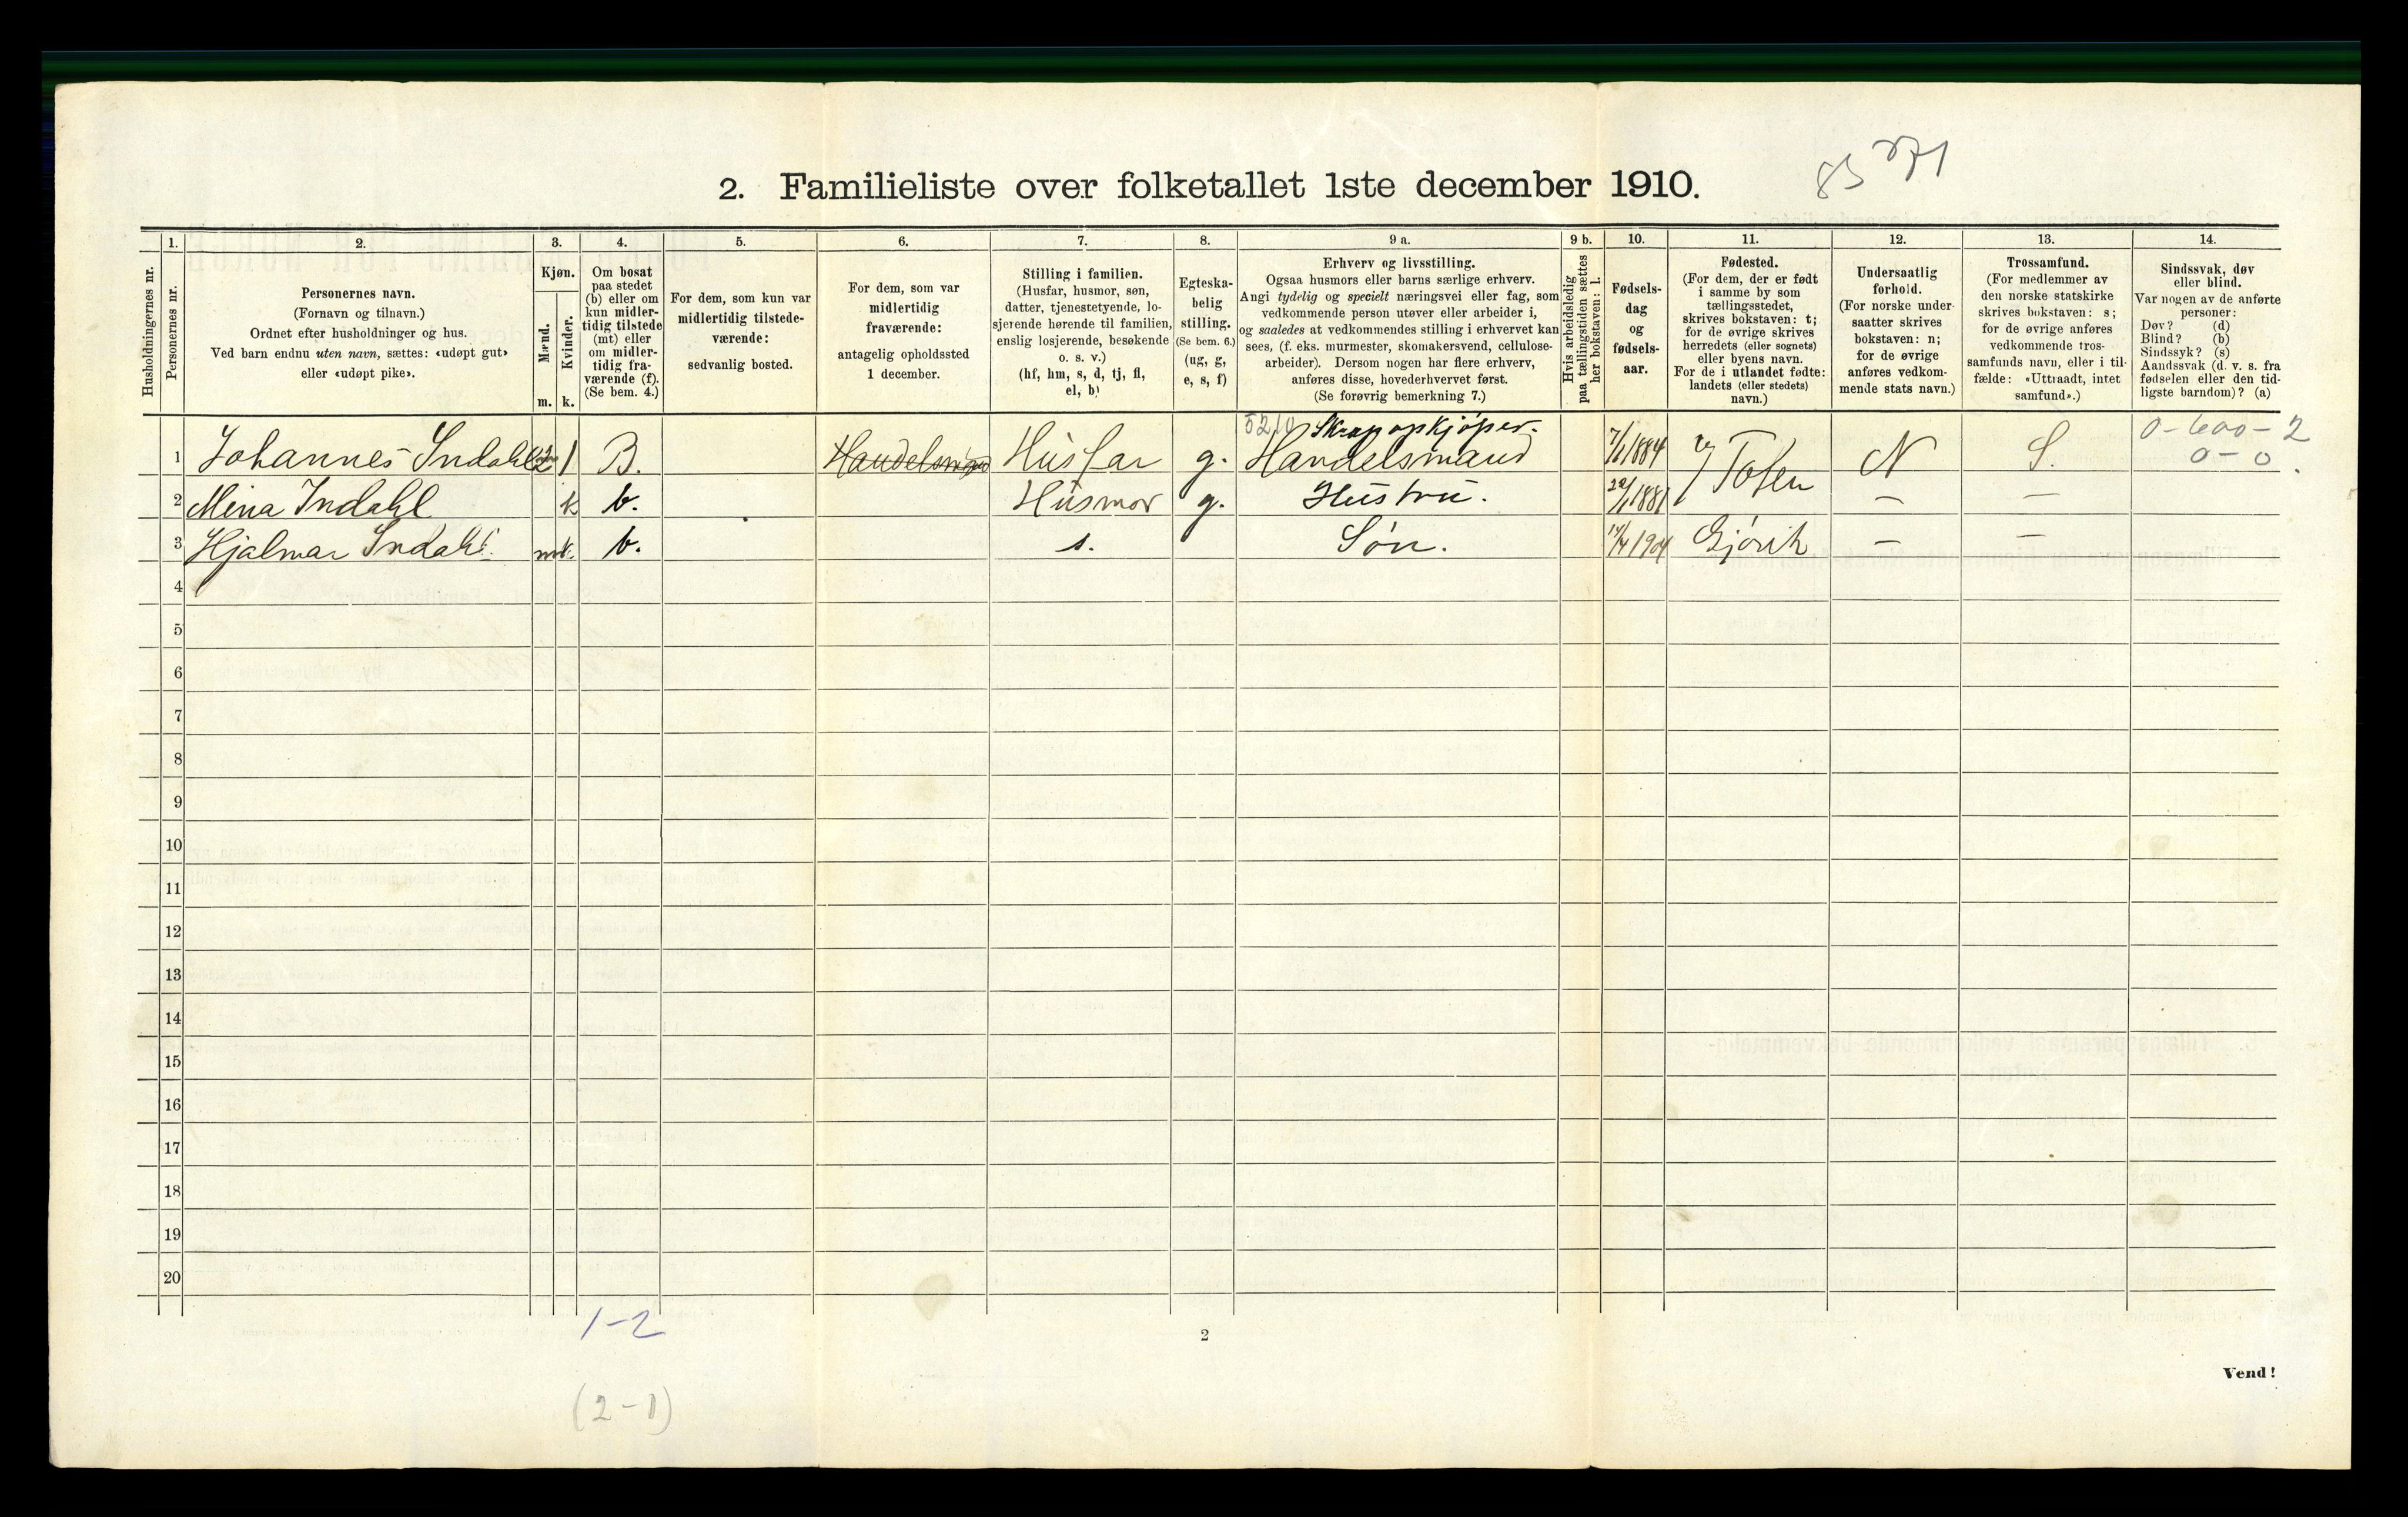 85 271
2. Familieliste over folketallet 1ste december 1910.
Husholdningernes nr.
1. Personernes nr.
2. Personernes navn.
(Fornavn og tilnavn.)
Ordnet efter husholdninger og hus.
Ved barn endnu uten navn, sættes: «udøpt gut»
eller «udøpt pike».
3. Kjøn.
Mænd. m.
Kvinder. k.
4. Om bosat
paa stedet
(b) eller om
kun midler-
tidig tilstede
(mt) eller
om midler-
tidig fra-
værende (f).
(Se bem. 4.)
5. For dem, som kun var
midlertidig tilstede-
værende:
sedvanlig bosted.
6. For dem, som var
midlertidig
fraværende:
antagelig opholdssted
1 december.
7. Stilling i familien.
(Husfar, husmor, søn,
datter, tjenestetyende, lo-
sjerende hørende til familien,
enslig losjerende, besøkende
o. s. v.)
(hf, hm, s, d, tj, fl,
el, b)
8. Egteska-
belig
stilling.
(Se bem. 6.)
(ug, g,
e, s, f)
9 a. Erhverv og livsstilling.
Ogsaa husmors eller barns særlige erhverv.
Angi tydelig og specielt næringsvei eller fag, som
vedkommende person utøver eller arbeider i,
og saaledes at vedkommendes stilling i erhvervet kan
sees, (f. eks. murmester, skomakersvend, cellulose-
arbeider). Dersom nogen har flere erhverv,
anføres disse, hovederhvervet først.
(Se forøvrig bemerkning 7.)
9 b. Hvis arbeidsledig
paa tællingstiden sættes
her bokstaven: l.
10. Fødsels-
dag
og
fødsels-
aar.
11. Fødested.
(For dem, der er født
i samme by som
tællingsstedet,
skrives bokstaven: t;
for de øvrige skrives
herredets (eller sognets)
eller byens navn.
For de i utlandet fødte:
landets (eller stedets)
navn.)
12. Undersaatlig
forhold.
(For norske under-
saatter skrives
bokstaven: n;
for de øvrige
anføres vedkom-
mende stats navn.)
13. Trossamfund.
(For medlemmer av
den norske statskirke
skrives bokstaven: s;
for de øvrige anføres
vedkommende tros-
samfunds navn, eller i til-
fælde: «Uttraadt, intet
samfund».)
14. Sindssvak, døv
eller blind.
Var nogen av de anførte
personer:
Døv? (d)
Blind? (b)
Sindssyk? (s)
Aandssvak (d. v. s. fra
fødselen eller den tid-
ligste barndom)? (a)
5210 Skrapopkjøper. 0-600-2
1 Johannes Indahl 2 1 B. Handelsmand Husfar g. Handelsmand 7/1 1884 Toten N S. 0-0
2 Mina Indahl k b. Husmor g. Hustru. 1881 — —
3 Hjalmar Indahl m b. s. Søn. 1904 Gjøvik — —
4
5
6
7
8
9
10
11
12
13
14
15
16
17
18
19
20
1-2
2
Vend!
(2-1)